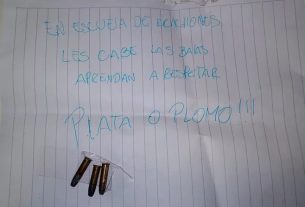 EN ESCUELA DE CACHONES
LES CABE LAS BALAS
APRENDAN A RESPETAR
PLATA O PLOMO!!!